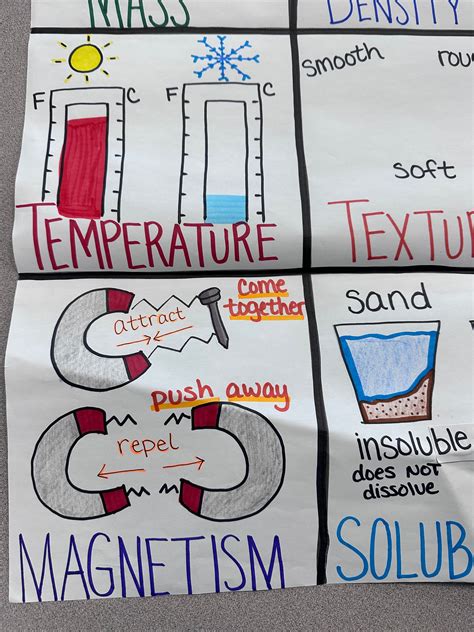 MASS
DENSITY
F C
F C
TEMPERATURE
smooth
soft
attract
come
together
push away
repel
MAGNETISM
sand
insoluble
does NOT
dissolve